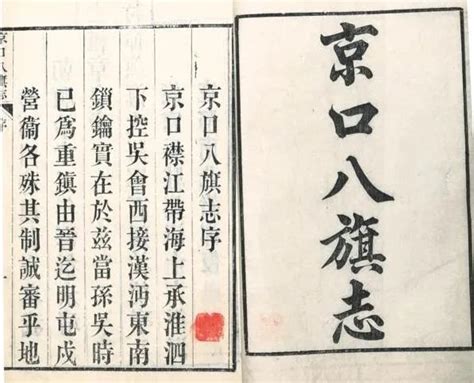 京口八旗志
京口八旗志序
京口襟江帶海上承淮泗
下控吳會西接漢沔東南
鎖鑰實在於茲當孫吳時
已為重鎮由晉迄明屯戍
營衞各殊其制誠審乎地
京口八旗志 序